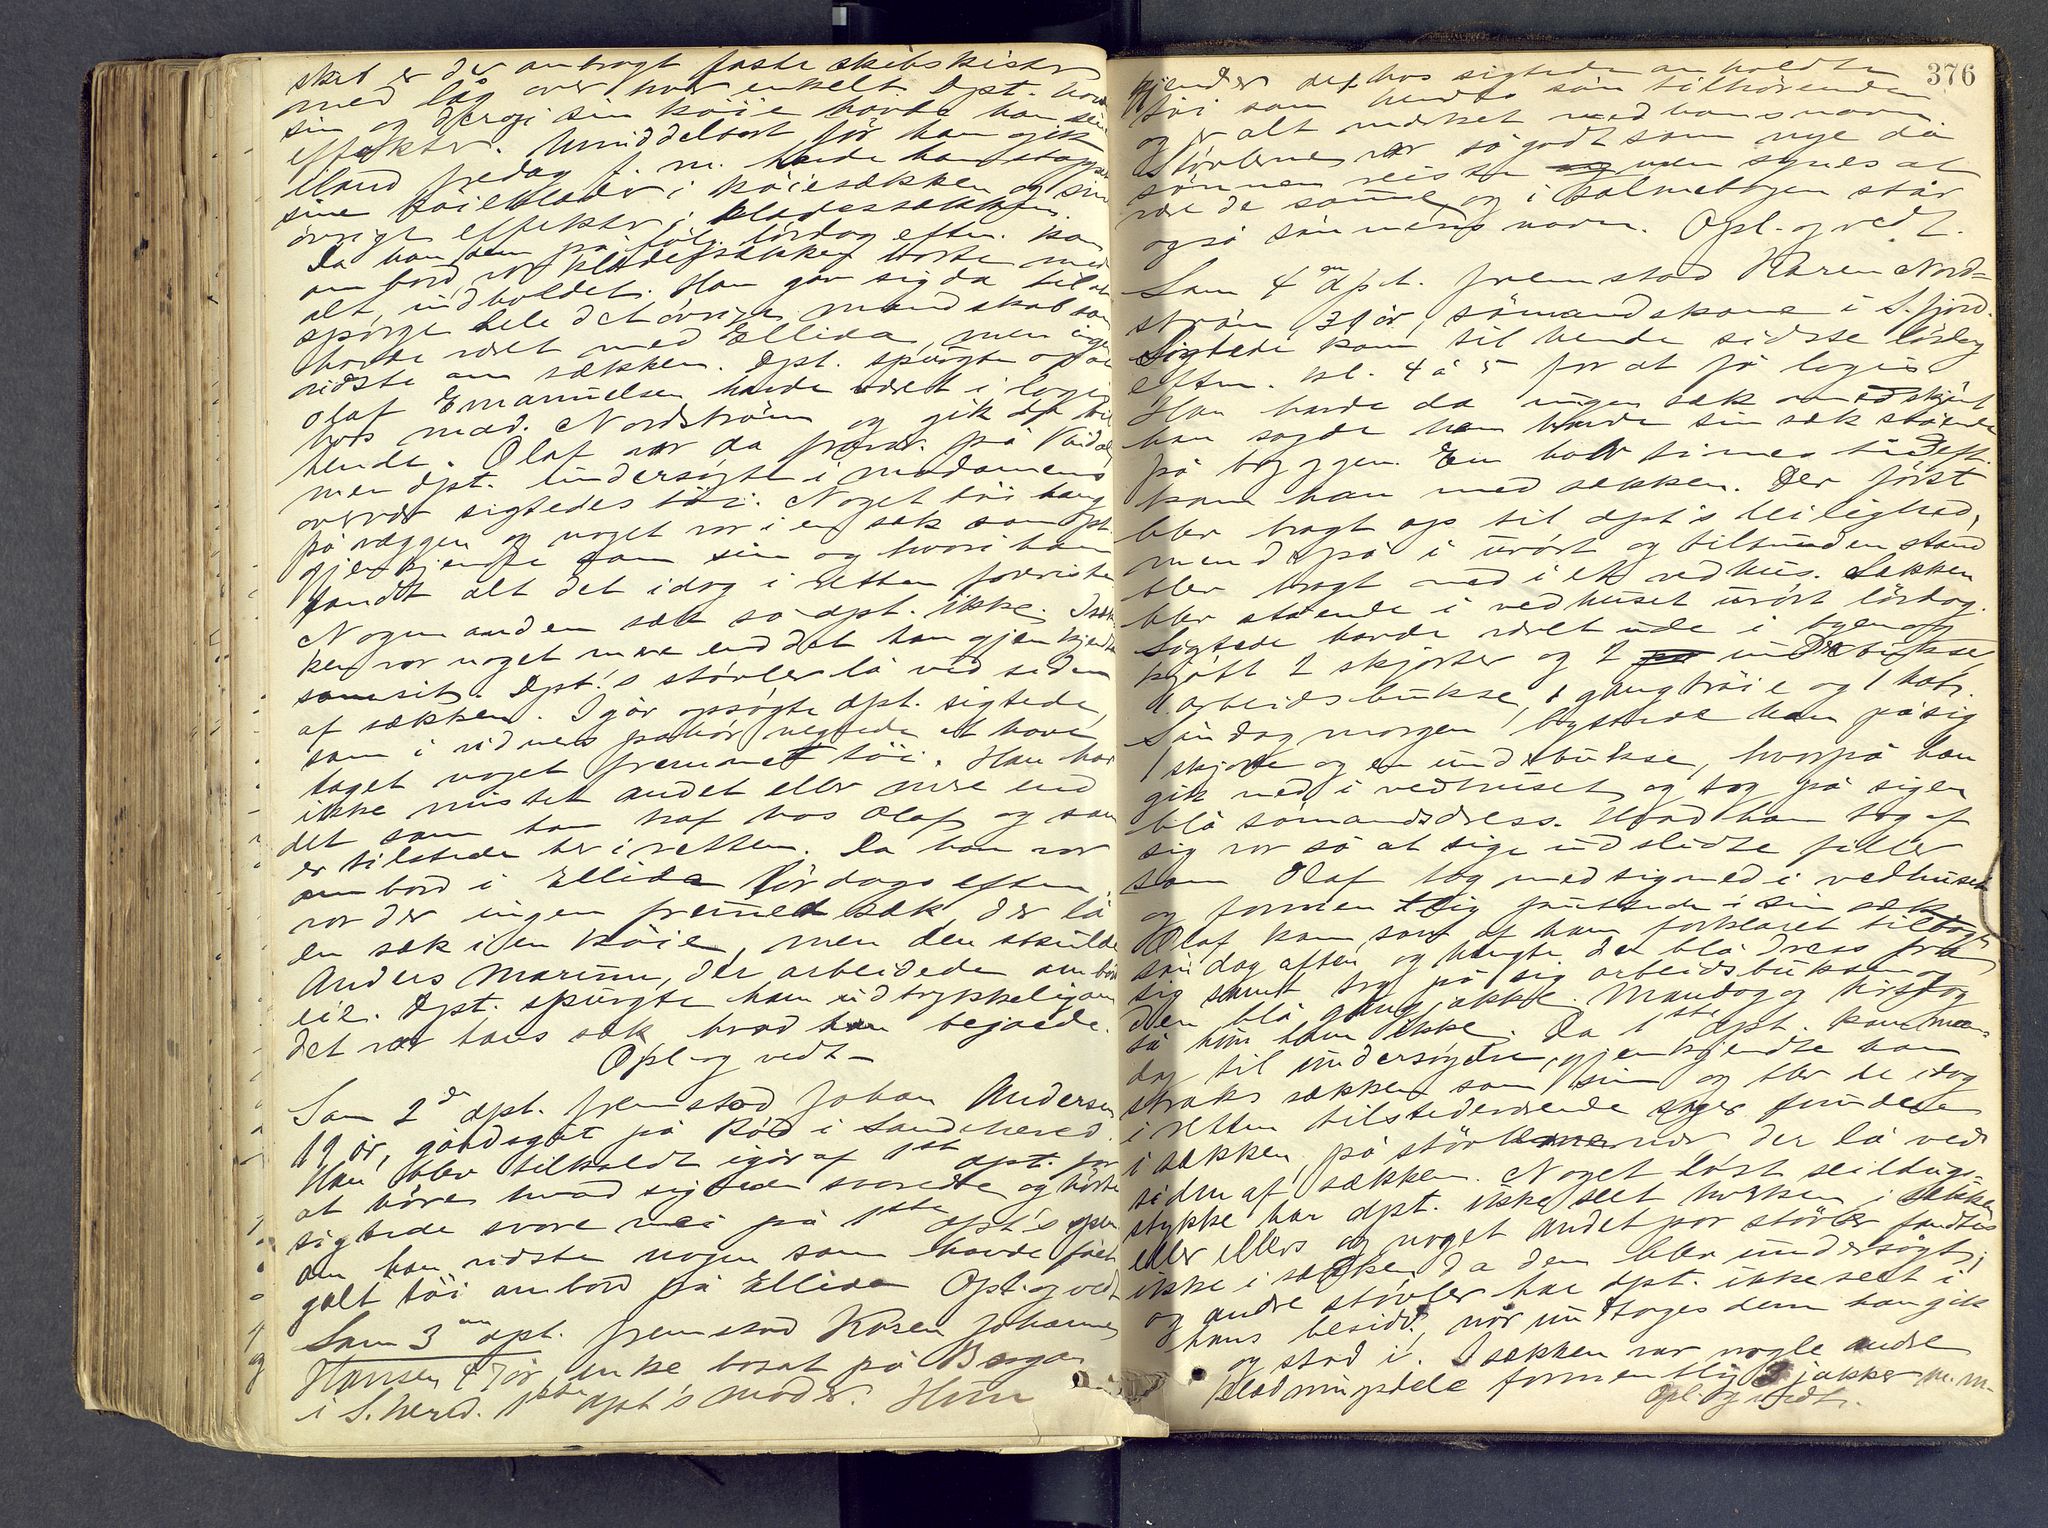 skab er der anbragt faste skibskister
med låg over hver enkelt. Dpt. havde
sin og deroj i sin köie havde han sine
effekter. Umiddelbart för han gik
iland fredag f. m. havde han stoppet
sine köieklæder i köiesækken og sine
övrige effekter i klædessækken.
Da han kom på følg. lördag eftm. kom
ombord var klædessækken borte med
alt indholdet. Han gav sig da til at
spörge hele det övrige mandskab som
havde været med Ellida, men ingen
vidste om sækken. Dpt. spurgte også
Olaf Emanuelsen havde været i logi
hos mad. Nordström og gik op til
hende. Olaf var da fravær. på
men dpt. undersøgte i madamens
overvær sigtedes töi. Noget töi hang
på væggen og noget var i en sæk som dpt.
gjenkjendte som sin og hvori han
fandt alt det idag i retten foreviste.
Nogen anden sæk så dpt. ikke. I sæk-
ken var noget mere end det han gjenkjendte
som sit. Dpt.'s støvler lå ved siden
af sækken. Igår opsøgte dpt. sigtede,
som i vidners påhør negtede at have
taget noget fremmet töi. Han har
ikke mistet andet eller mere end
det som han traf hos Olaf og som
er tilstede her i retten. Da han var
ombord i Ellida lördags eftm.
var der ingen fremmed sæk, der lå
en sæk i en köie, men den skulde
Anders Marinus, der arbeidede ombord
eie. Dpt. spurgte ham udtrykkelig om
det var hans sæk hvad han bejaede.
Opl. og vedt.
Som 2de dpt. fremstod Johan Andersen
19 år, gårdsgut på Röd i Sandehered.
Han blev tilkaldt igår af 1ste dpt. for
at höre hvad sigtede svarede og hörte
sigtede svare nei på 1ste dpt's spm.
om han vidste nogen som havde fået
galt töi ombord på Ellida Opl. og vedt.
Som 3die dpt. fremstod Karen Johanne
Hansen 47 år, enke bosat på Bergan
i S.hered. 1ste dpt's moder. Hun
376
kjender det hos sigtede anholdte
töi som hendes sön tilhørende
og er alt mærket med hans navn.
Støvlerne var så godt som nye da
sönnen reiste men synes at
være de samme og i salmebogen står
også sönnens navn. Opl. og vedt.
Som 4de dpt. fremstod Karen Nord-
ström 31 år, sömandskone i S.fjord.
Sigtede kom til hende sidste lördag
eftm. kl. 4 à 5 for at få logis
Han havde da ingen sæk med skjönt
han sagde han havde sin sæk stående
på bryggen. En halv times tid eft.
kom han med sækken. Der först
blev bragt op til dpt's leilighed,
men derpå i urört og tilbunden stand
blev bragt ned i et vedhus. Sækken
blev stående i vedhuset urört lördag.
Sigtede havde været ude i byen og
kjöbt 2 skjorter og 2 underbukser,
1 arbeidsbukse, 1 gangtröie og 1 hat.
Söndag morgen byttede han på sig
1 skjorte og en underbukse, hvorpå han
gik ned i vedhuset og tog på sig en
blå sömandsdress. Hvad han tog af
sig var så at sige udslidte filler
som Olaf tog med sig ned i vedhuset
og formentlig puttede i sin sæk
Olaf kom som af ham forklaret tilbage
söndag aften og hængte den blå dress fra
sig samt tog på sig arbeidsbuksen og
den blå gangjakke. Mandag og tirsdag
så hun ham ikke. Da 1ste dpt. kom man-
dag til undersøgelse, gjenkjendte han
straks sækken som sin og blev de idag
i retten tilstedeværende sager fundne
i sækken, på støvlerne nær, der lå ved
siden af sækken. Noget löst seildugs-
stykke har dpt. ikke seet hverken i sækken
eller ellers og noget andet par støvler fandtes
ikke i sækken da den blev undersøgt,
og andre støvler har dpt. ikke seet i
hans besidd., når undtages dem han gik
og stod i. I sækken var nogle andre
klædningsdele formentlig 3 jakker m. m.
Opl. og vedt.